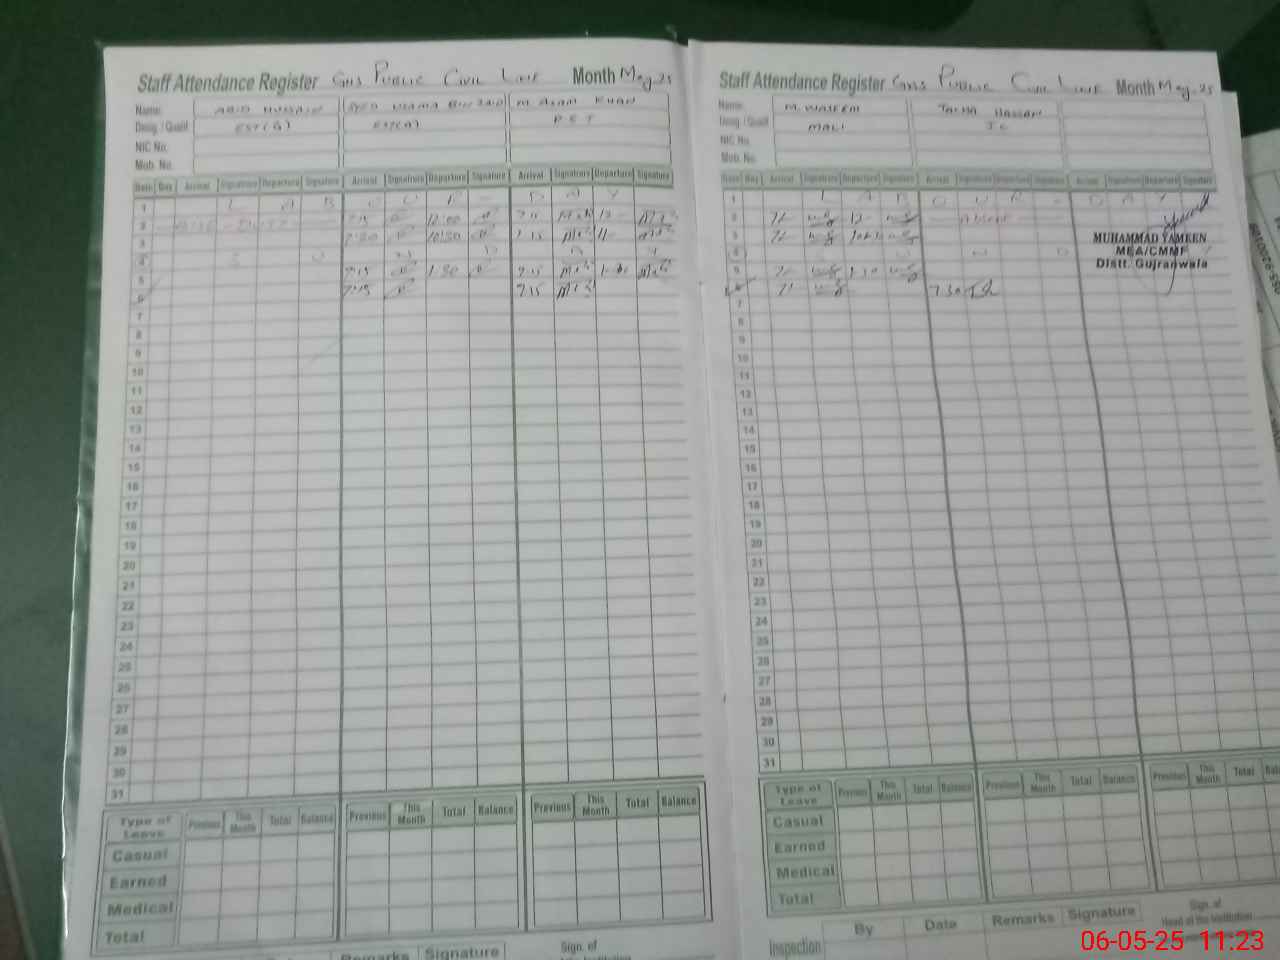 Staff Attendance Register GHS Public Civil Line Month May-25
Name: ABID HUSSAIN SYED USAMA BIN ZAID M. AZAM KHAN
Desig. / Qualif. EST(G) EST(A) P E T
NIC No.
Mob. No.
Date Day Arrival Signature Departure Signature Arrival Signature Departure Signature Arrival Signature Departure Signature
1 L A B O U R - D A Y
2 7:15 12:00 7 11 12 -
3 7:30 10:30 7.15 11-
4 S U N D A Y
5 7:15 1:30 7.15
6 7:15 7.15
7
8
9
10
11
12
13
14
15
16
17
18
19
20
21
22
23
24
25
26
27
28
29
30
31
Type of Leave Previous This Month Total Balance Previous This Month Total Balance Previous This Month Total Balance
Casual
Earned
Medical
Total
Remarks Signature Sign. of
Staff Attendance Register GHS Public Civil Line Month May-25
Name: M. WASEEM TALHA HASSAN
Desig. / Qualif. MALI J C
NIC No.
Mob. No.
Date Day Arrival Signature Departure Signature Arrival Signature Departure Signature Arrival Signature Departure Signature
1 L A B O U R - D A Y
2 7/- 12- Absent
3 7/-
MUHAMMAD YAMEEN
MEA/CMMF
Distt. Gujranwala
4 S U N D
5 7/- 1.30
6 7/- 7.30
7
8
9
10
11
12
13
14
15
16
17
18
19
20
21
22
23
24
25
26
27
28
29
30
31
Type of Leave Previous This Month Total Balance Previous This Month Total Balance Previous This Month Total
Casual
Earned
Medical
Total
Inspection By Date Remarks Signature Sign. of Head of the Institution
06-05-25 11:23